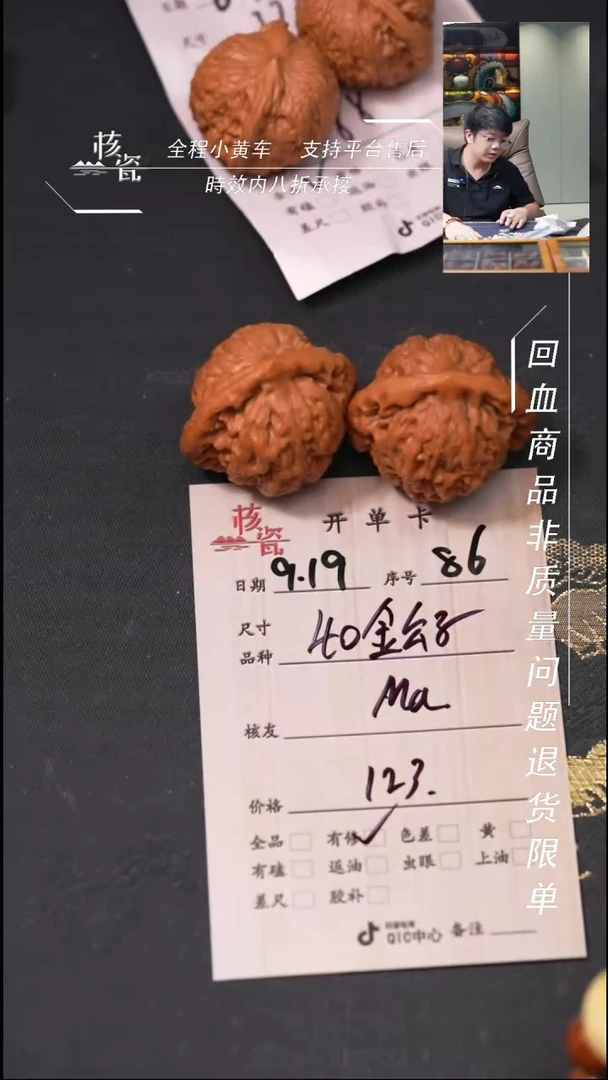 尺寸
有磕
差尺
胶补
核瓷
全程小黄车 支持平台售后
時效内八折承接
回血商品非质量问题退货限单
核瓷
开单卡
日期 9.19 序号 86
尺寸
品种 40金公子
核友 Ma.
价格 123.
全品 有修 色差 黄
有磕 返油 虫眼 上油
差尺 胶补
QIC中心 备注